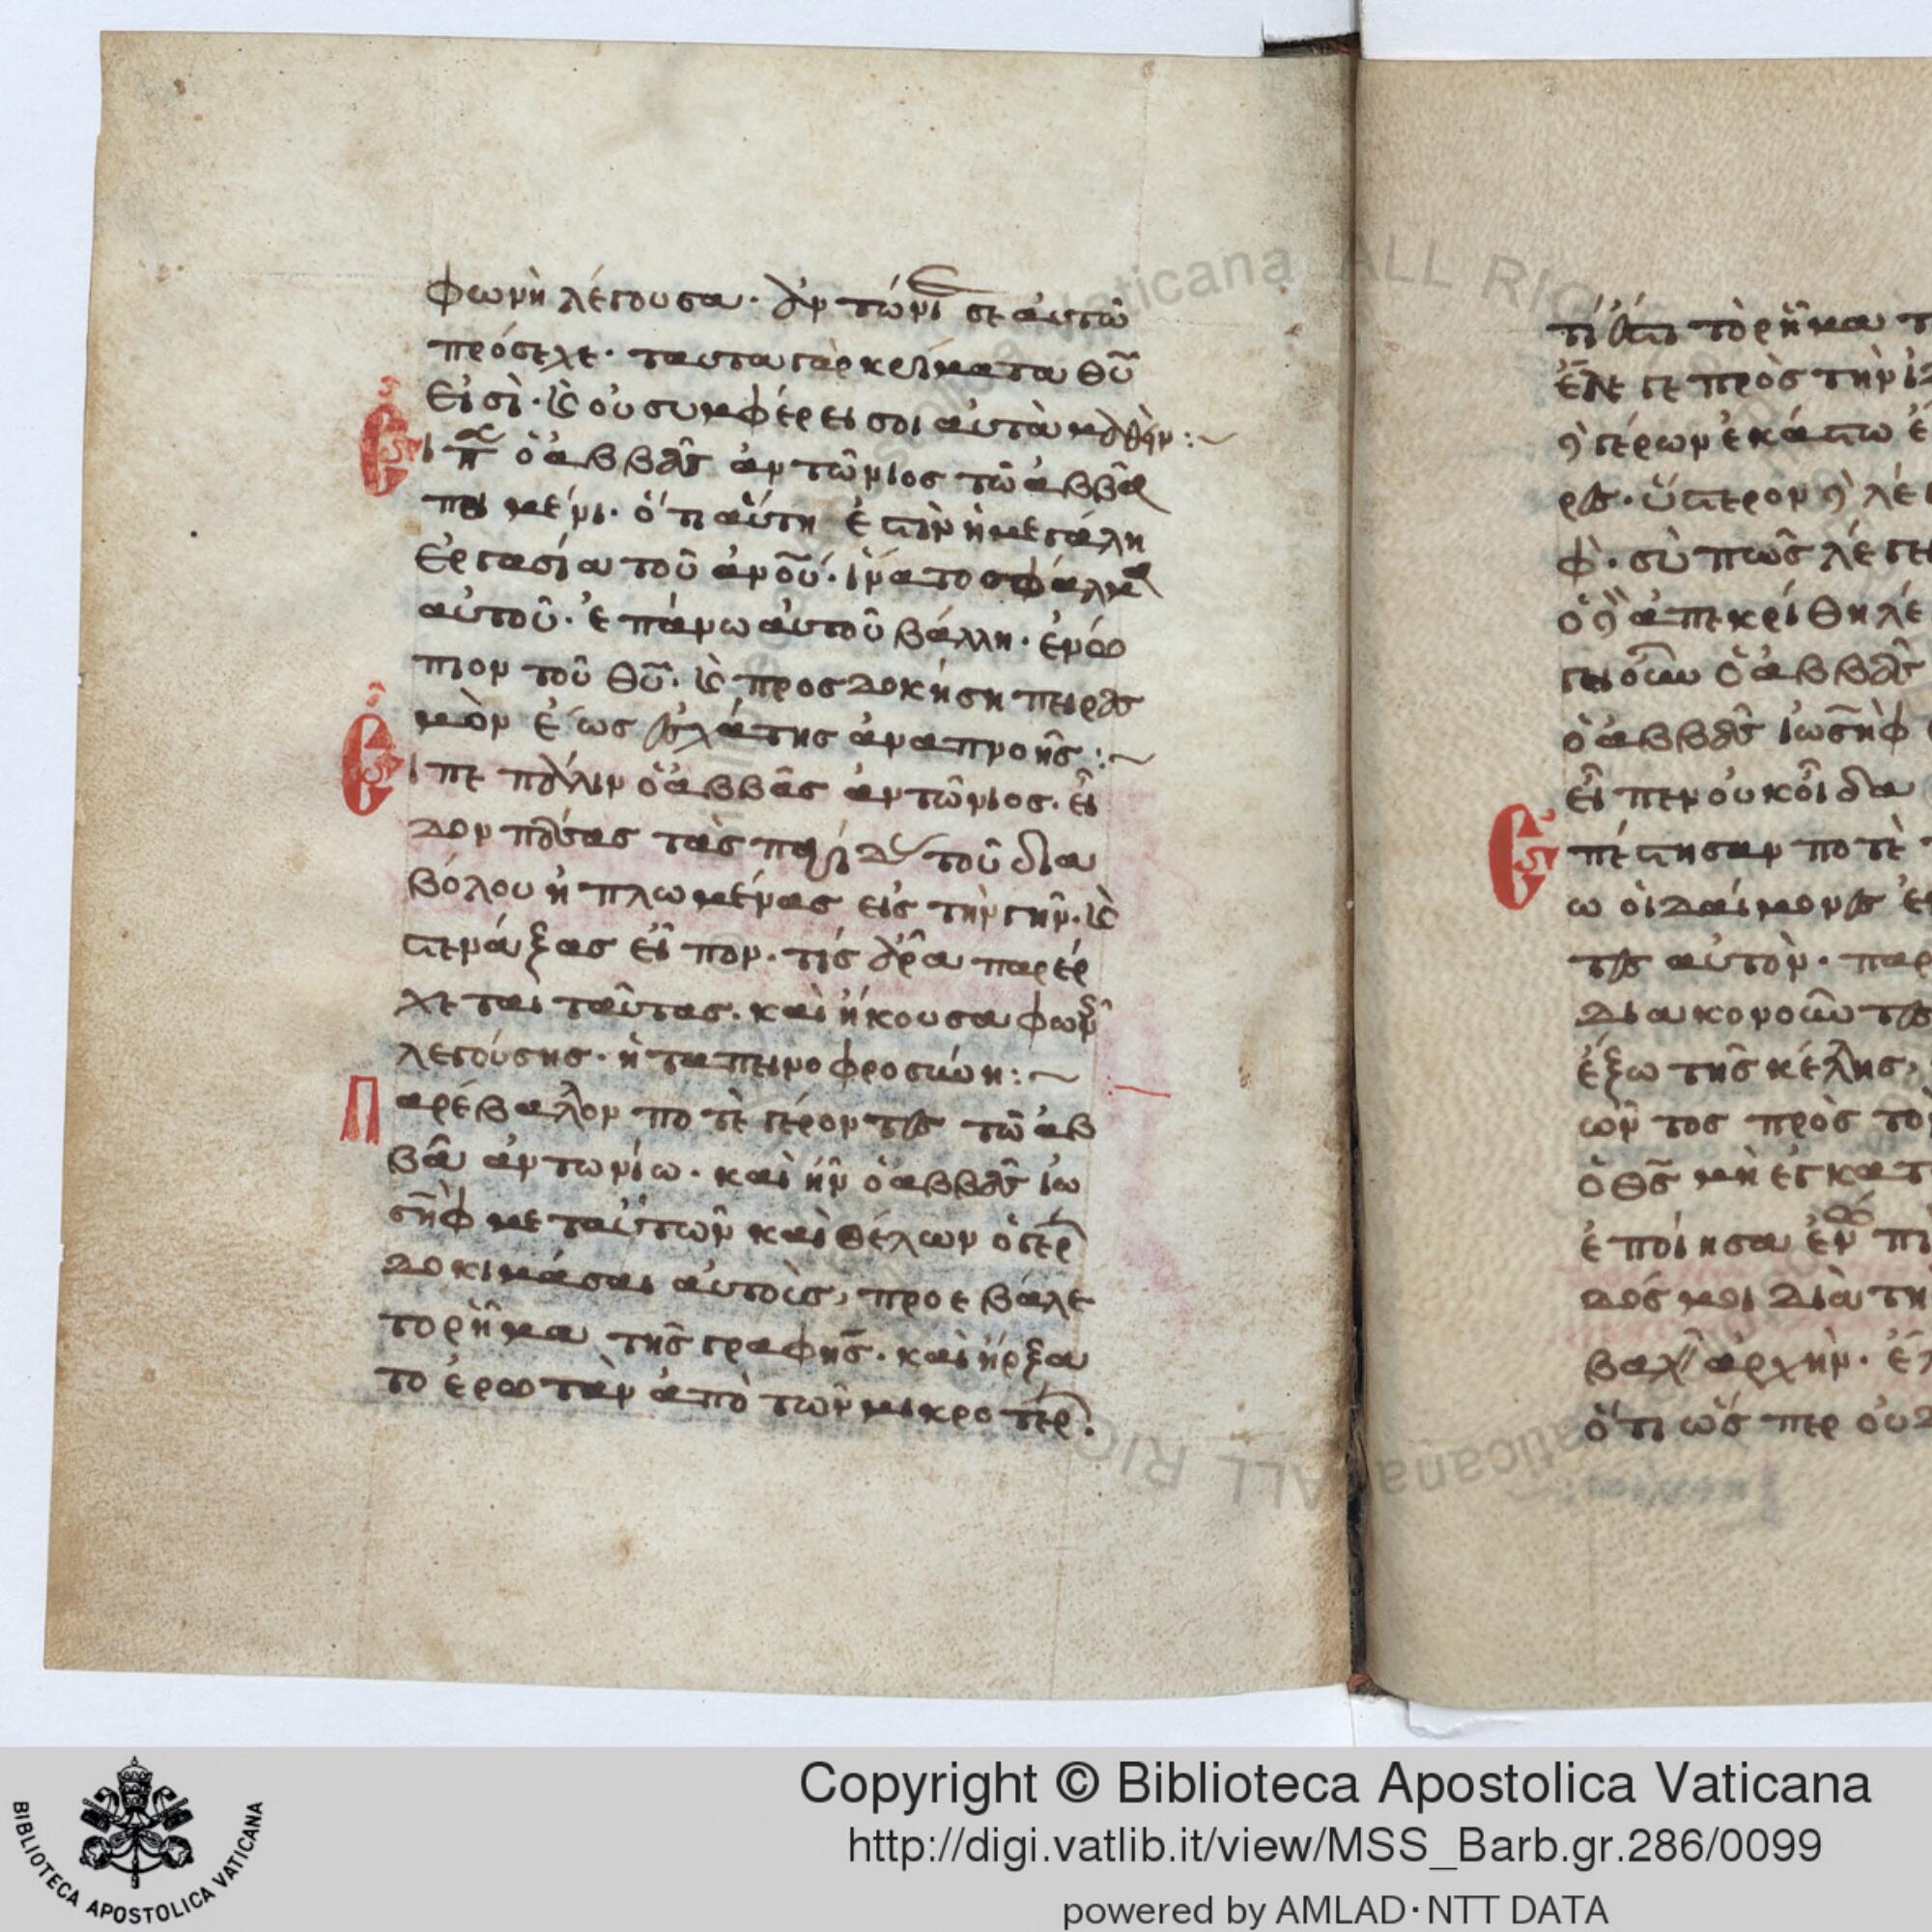 φωνὴ λέγουσα· ἀντώνιε σεαυτῶ
πρόσεχε· ταυτα γὰρ κρίματα θ̅υ̅
εἰσὶ· καὶ οὐ συμφέρει σοι αὐτὰ μαθεῖν:~
Εἶπ ὁ ἀββᾶς ἀντῶνιος τῶ ἀββᾶ
ποιμένι· ὅτι αὕτη ἐστὶν ἡ μεγάλη
ἐργασία τοῦ ἀνο̅υ̅· ἵνα το σφάλμα
αὐτοῦ· ἐπάνω αὐτοῦ βάλλη· ἐνώ
πιον τοῦ θ̅υ̅· καὶ προσδοκήση πειρας
μὸν ἕως ἐσχάτης ἀναπνοῆς:~
Εἶπε πάλιν ὁ ἀββᾶς ἀντῶνιος· εἶ
δον πάσας τὰς παγίδας τοῦ δια
βόλου ἡπλωμένας εἰς τὴν γῆν· καὶ
στενάξας εἶπον· τίς ἄρα παρέρ
χεται ταῦτας· καὶ ἤκουσα φωνῆς
λεγούσης· ἡ ταπεινοφροσύνη:~
Παρέβαλον ποτὲ γέροντες τῶ ἀβ
βᾶ ἀντωνίω· καὶ ἦν ὁ ἀββᾶς ἰω
σὴφ μεταὐτῶν καὶ θέλων ὁ γέρ
δοκιμάσαι αὐτοὺς, προεβάλε
το ρῆμα τῆς γραφῆς· καὶ ἤρξα
το ἐρωτὰν ἀπὸ τῶν μικροτέρ·
τί ἐστι τὸ ρῆμα τ
ὑστέρων ἑκάστω ἔ
ὕστερον δὲ λέ
φ· σὺ πῶς λέγει
ὁ δὲ ἀπεκρίθη λέ
ὁ ἀββᾶς
ὁ ἀββᾶς ἰωσὴφ
εἶπεν οὐκ οἶδα
Ἐπέστησαν ποτὲ
ω οἱ δαίμονες
τες αὐτὸν· παρ
διακονοῦντες
ἔξω τῆς κέλης,
ῶντος πρὸς το
ὁ θ̅ς̅ μὴ ἐγκατ
ἐποίησα ἐνώπι
δός μοι διὰ τη
βαλ ἀρχὴν·
ὅτι ὥσπερ οὐδ
Copyright © Biblioteca Apostolica Vaticana
http://digi.vatlib.it/view/MSS_Barb.gr.286/0099
powered by AMLAD·NTT DATA
BIBLIOTECA APOSTOLICA VATICANA